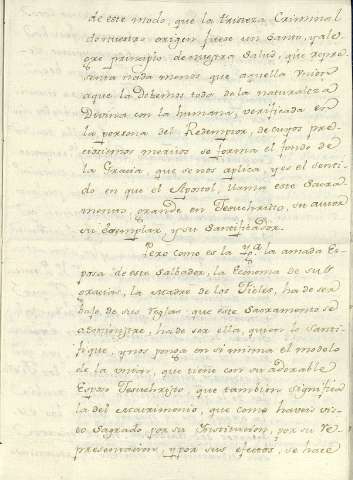 de este modo, que la tristeza, Criminal
de nuestro origen fuese un Santo, y ale
gre principio de nuestra Salud, que repre
senta nada menos que aquella Union
a que la Debemos toda de la naturaleza
Divina con la humana, verificada en
la persona del Redemptor, de cuyos pre
ciosisimos meritos se forma el fondo de
la Gracia, que se nos aplica, y es el senti
do en que el Apostol, llama este Sacra
mento, grande en Jesuchristo, su autor
su Exemplar, y su Santificador.
Pero como es la Yg.ª la amada Es
posa de este Salvador, la Economa de sus
gracias, la Madre de los Fieles, ha de ser
bajo, de sus reglas, que este Sacramento se
administre, ha de ser ella, quien lo santi
fique, y nos ponga en si misma el modelo
de la union, que tiene con su adorable
Esposo Jesuchristo, que tambien signific
la del Matrimonio, que como haveis vis
to Sagrado por su Institucion, por su re
presentacion, y por sus efectos, se hace